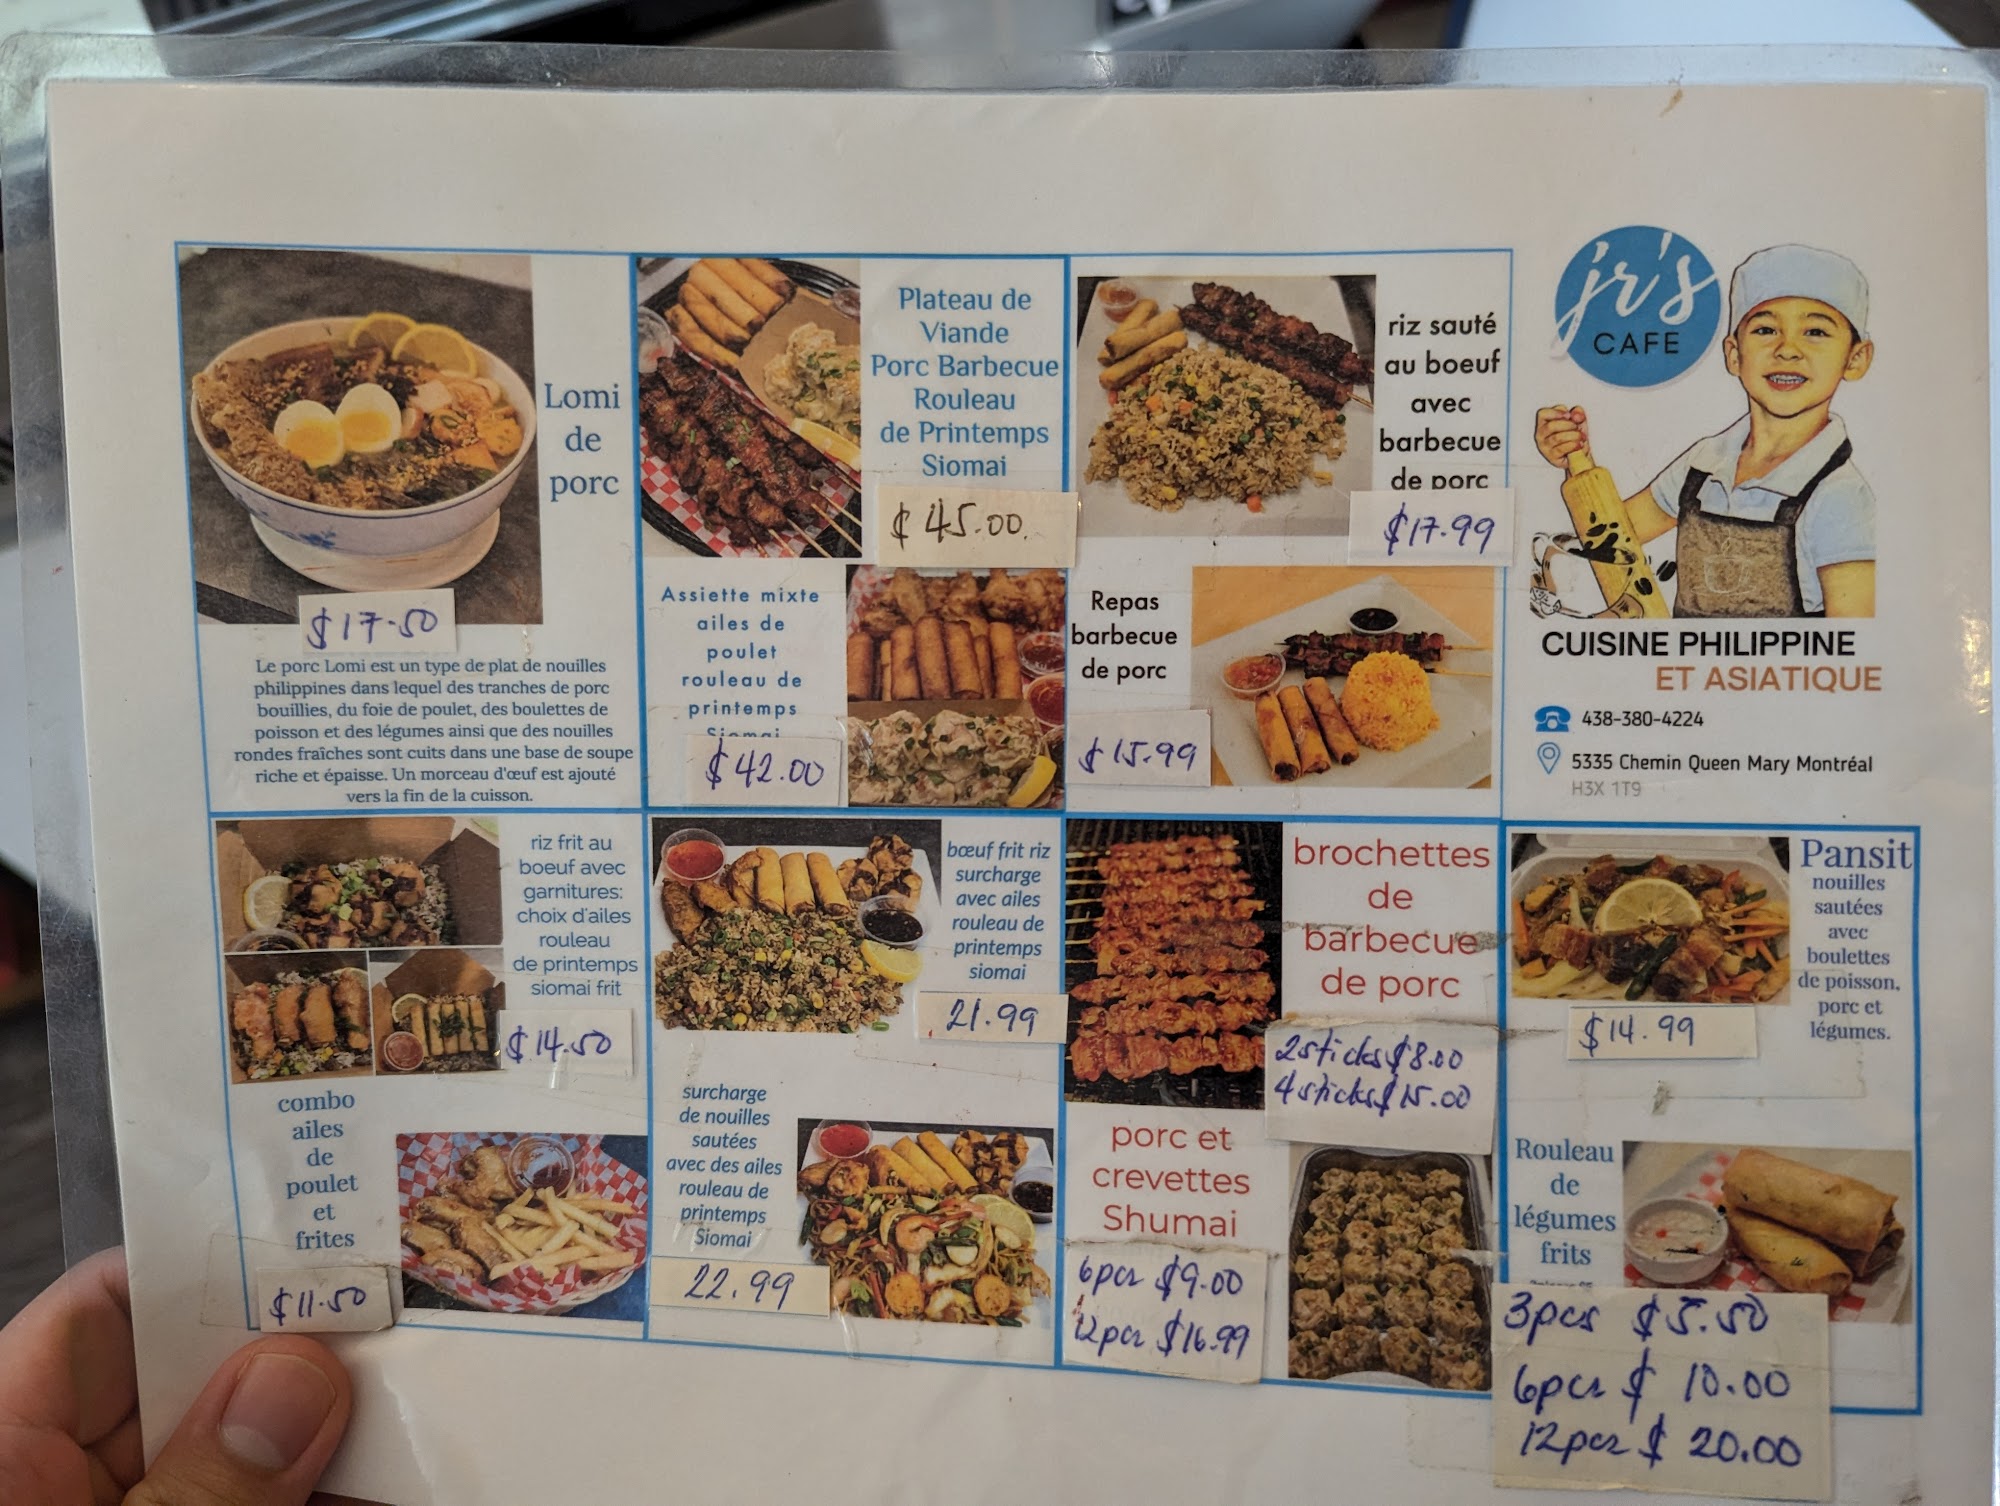 Lomi
de
porc
$17.50
Le porc Lomi est un type de plat de nouilles
philippines dans lequel des tranches de porc
bouillies, du foie de poulet, des boulettes de
poisson et des légumes ainsi que des nouilles
rondes fraîches sont cuits dans une base de soupe
riche et épaisse. Un morceau d'œuf est ajouté
vers la fin de la cuisson.
Plateau de
Viande
Porc Barbecue
Rouleau
de Printemps
Siomai
$45.00
Assiette mixte
ailes de
poulet
rouleau de
printemps
Siomai
$42.00
riz sauté
au boeuf
avec
barbecue
de porc
$17.99
Repas
barbecue
de porc
$15.99
jr's
CAFE
CUISINE PHILIPPINE
ET ASIATIQUE
438-380-4224
5335 Chemin Queen Mary Montréal
H3X 1T9
riz frit au
boeuf avec
garnitures:
choix d'ailes
rouleau
de printemps
siomai frit
$14.50
combo
ailes
de
poulet
et
frites
$11.50
bœuf frit riz
surcharge
avec ailes
rouleau de
printemps
siomai
21.99
surcharge
de nouilles
sautées
avec des ailes
rouleau de
printemps
Siomai
22.99
brochettes
de
barbecue
de porc
2sticks $8.00
4sticks $15.00
porc et
crevettes
Shumai
6pcs $9.00
12pcs $16.99
Pansit
nouilles
sautées
avec
boulettes
de poisson,
porc et
légumes.
$14.99
Rouleau
de
légumes
frits
3pcs $5.50
6pcs $ 10.00
12pcs $ 20.00